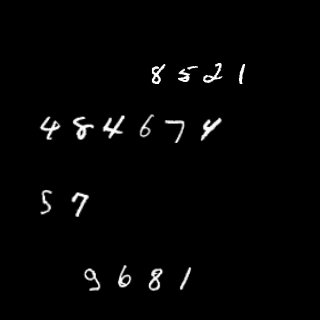 8521
484674
57
9681